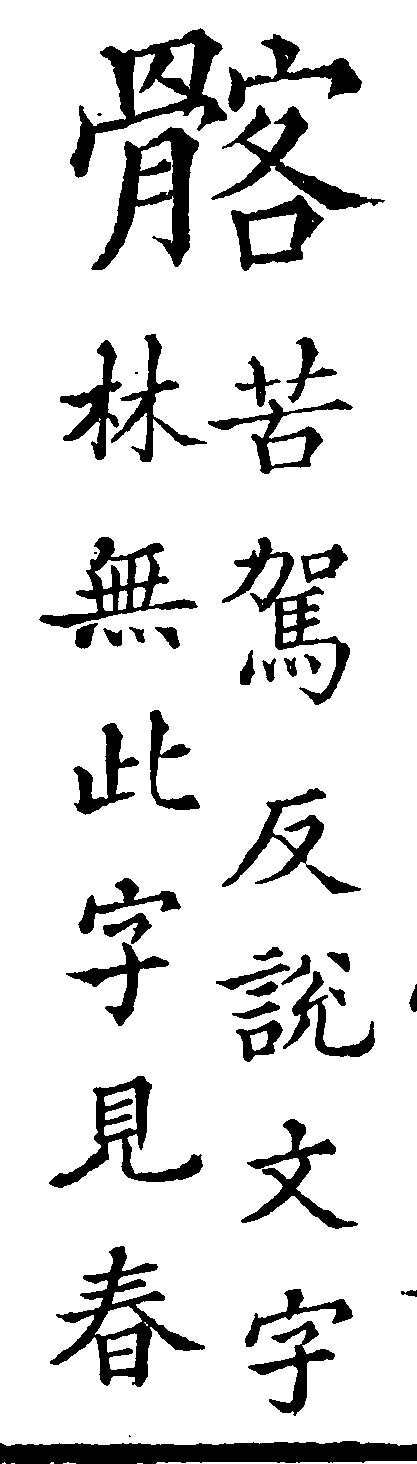 髂
苦駕反說文字
林無此字見春